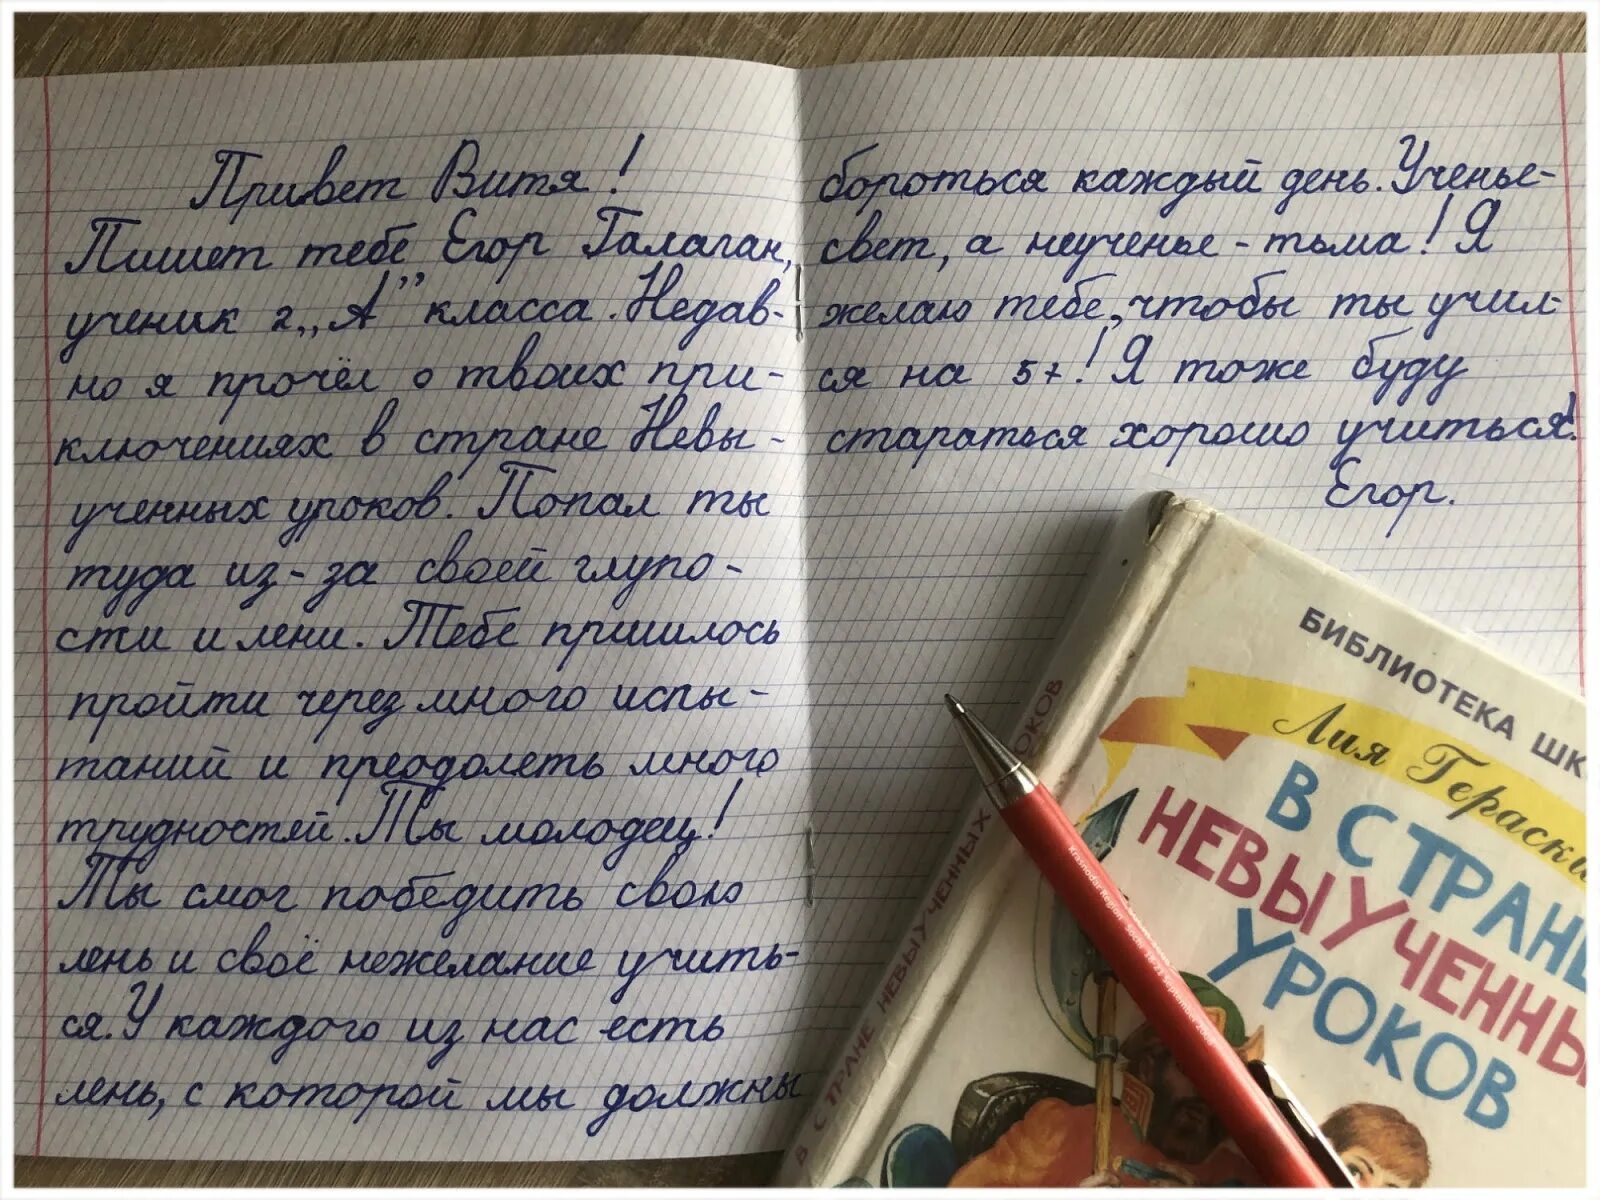 Привет Витя!
Пишет тебе Егор Галаган,
ученик 2 „А" класса. Недав-
но я прочёл о твоих при-
ключениях в стране Невы-
ученных уроков. Попал ты
туда из-за своей глупо-
сти и лени. Тебе пришлось
пройти через много испы-
таний и преодолеть много
трудностей. Ты молодец!
Ты смог победить свою
лень и своё нежелание учить-
ся. У каждого из нас есть
лень, с которой мы должны
бороться каждый день. Ученье-
свет, а неученье - тьма! Я
желаю тебе, чтобы ты учил-
ся на 5+! Я тоже буду
стараться хорошо учиться!
Егор.
БИБЛИОТЕКА ШК
Лия Гераски
В СТРАНЕ
НЕВЫУЧЕННЫ
УРОКОВ
В СТРАНЕ НЕВЫУЧЕННЫХ УРОКОВ
Krasnodar Region